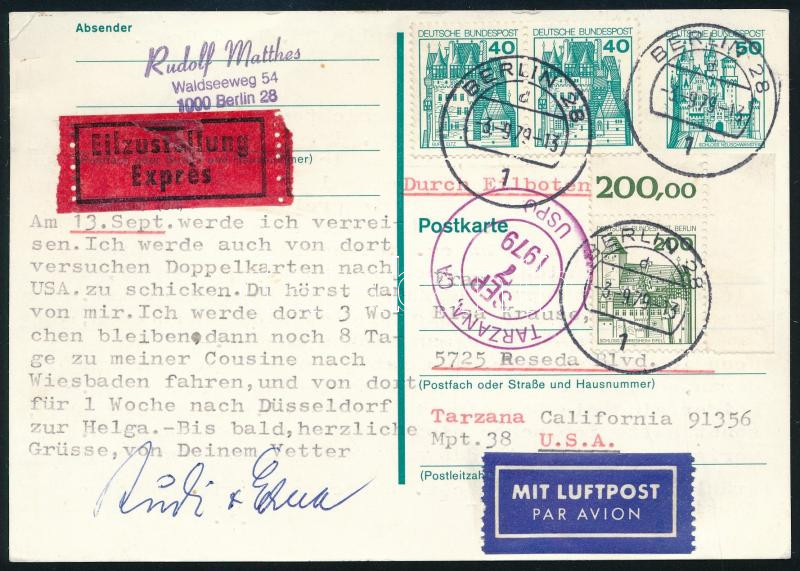 Absender
Rudolf Matthes
Waldseeweg 54
1000 Berlin 28
Eilzustellung
Expres
(Postfach oder Straße und Hausnummer)
Am 13.Sept.werde ich verrei-
sen.Ich werde auch von dort
versuchen Doppelkarten nach
USA.zu schicken.Du hörst dan
von mir.Ich werde dort 3 Wo-
chen bleiben,dann noch 8 Ta-
ge zu meiner Cousine nach
Wiesbaden fahren,und von dort
für 1 Woche nach Düsseldorf
zur Helga.-Bis bald,herzliche
Grüsse,von Deinem Vetter
Rudi + Erna
DEUTSCHE BUNDESPOST
40
DEUTSCHE BUNDESPOST
40
DEUTSCHE BUNDESPOST
50
SCHLOSS NEUSCHWANSTEIN
BERLIN 28
d
-3.-9.79-13
1
BERLIN 28
d
-3.-9.79-13
1
Durch Eilboten
200,00
DEUTSCHE BUNDESPOST BERLIN
200
BERLIN 28
d
-3.-9.79-13
1
Postkarte
TARZANA, CA
SEP
7
1979
USPO
Frau
Elna Krause,
5725 Reseda Blvd.
(Postfach oder Straße und Hausnummer)
Tarzana California 91356
Mpt.38 U.S.A.
(Postleitzahl
MIT LUFTPOST
PAR AVION